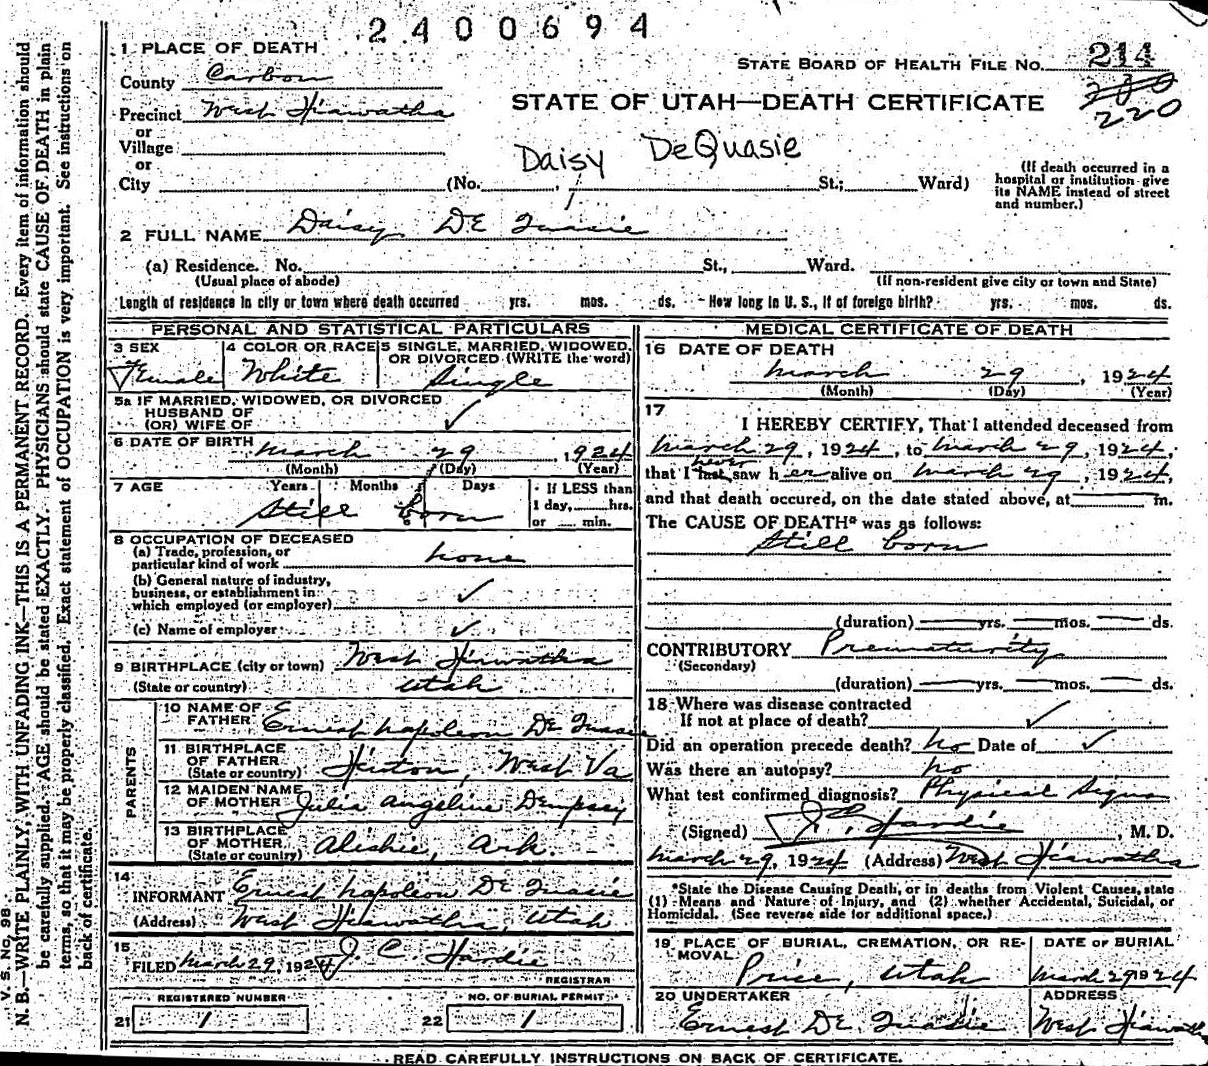 2400694
1 PLACE OF DEATH
STATE BOARD OF HEALTH FILE NO. 214
County Carbon
200
220
STATE OF UTAH—DEATH CERTIFICATE
Precinct West Hiawatha
or
Village
or
City (No. , St.; Ward)
Daisy DeQuasie
(If death occurred in a hospital or institution give its NAME instead of street and number.)
2 FULL NAME Daisy De Quasie
(a) Residence. No. St., Ward.
(Usual place of abode) (If non-resident give city or town and State)
Length of residence in city or town where death occurred yrs. mos. ds. How long in U. S., if of foreign birth? yrs. mos. ds.
PERSONAL AND STATISTICAL PARTICULARS
3 SEX 4 COLOR OR RACE 5 SINGLE, MARRIED, WIDOWED, OR DIVORCED (WRITE the word)
Female White Single
5a IF MARRIED, WIDOWED, OR DIVORCED
HUSBAND OF
(OR) WIFE OF ✓
6 DATE OF BIRTH March 29, 1924
(Month) (Day) (Year)
7 AGE Years Months Days If LESS than
1 day, hrs.
or min.
Still born
8 OCCUPATION OF DECEASED
(a) Trade, profession, or
particular kind of work none
(b) General nature of industry,
business, or establishment in
which employed (or employer) ✓
(c) Name of employer ✓
9 BIRTHPLACE (city or town) West Hiawatha
(State or country) Utah
PARENTS
10 NAME OF
FATHER Ernest Napoleon De Quasie
11 BIRTHPLACE
OF FATHER
(State or country) Hinton, West Va
12 MAIDEN NAME
OF MOTHER Julia Angeline Dempsey
13 BIRTHPLACE
OF MOTHER
(State or country) Ark.
14
INFORMANT Ernest Napoleon De Quasie
(Address) West Hiawatha, Utah
15
FILED March 29, 1924 J. C. Hardie
REGISTRAR
REGISTERED NUMBER NO. OF BURIAL PERMIT
21 1 22 1
MEDICAL CERTIFICATE OF DEATH
16 DATE OF DEATH
March 29, 1924
(Month) (Day) (Year)
17
I HEREBY CERTIFY, That I attended deceased from
March 29, 1924, to March 29, 1924,
that I last never saw h er alive on March 29, 1924,
and that death occured, on the date stated above, at m.
The CAUSE OF DEATH* was as follows:
Still born
(duration) yrs. mos. ds.
CONTRIBUTORY Prematurity
(Secondary)
(duration) yrs. mos. ds.
18 Where was disease contracted
If not at place of death? ✓
Did an operation precede death? no Date of ✓
Was there an autopsy? no
What test confirmed diagnosis? Physical Signs
(Signed) J. C. Hardie, M. D.
March 29, 1924 (Address) West Hiawatha
*State the Disease Causing Death, or in deaths from Violent Causes, state
(1) Means and Nature of Injury, and (2) whether Accidental, Suicidal, or
Homicidal. (See reverse side for additional space.)
19 PLACE OF BURIAL, CREMATION, OR REMOVAL DATE OF BURIAL
Price, Utah March 29 1924
20 UNDERTAKER ADDRESS
Ernest De Quasie West Hiawatha
READ CAREFULLY INSTRUCTIONS ON BACK OF CERTIFICATE.
V. S. No. 98
N. B.—WRITE PLAINLY, WITH UNFADING INK—THIS IS A PERMANENT RECORD. Every item of information should
be carefully supplied. AGE should be stated EXACTLY. PHYSICIANS should state CAUSE OF DEATH in plain
terms, so that it may be properly classified. Exact statement of OCCUPATION is very important. See instructions on
back of certificate.